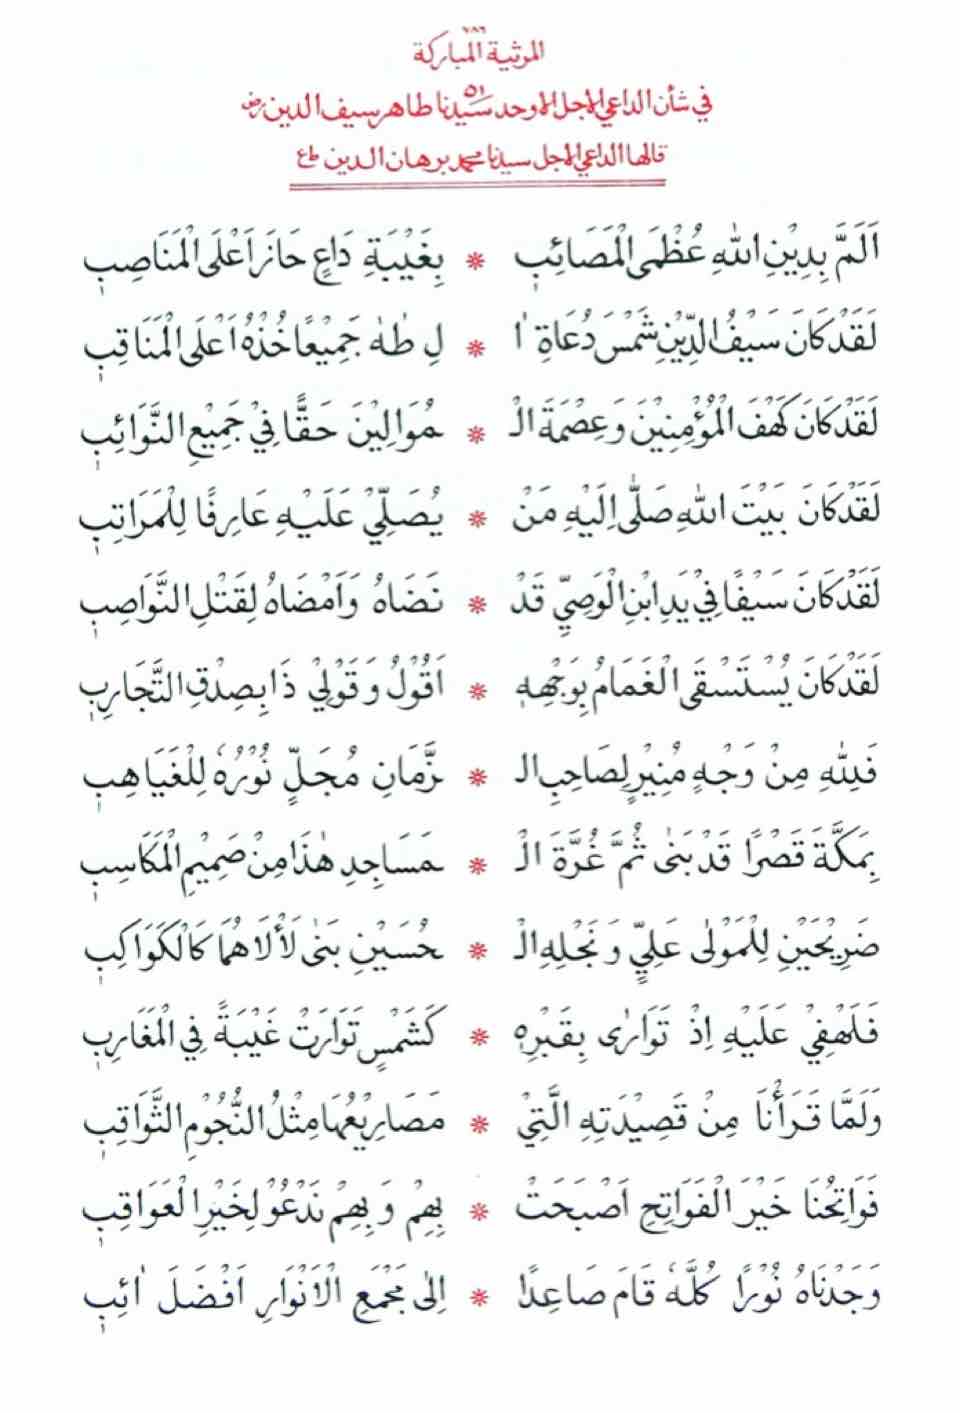 ٧٨٦
المرثية المباركة
في شأن الداعي الاجل الاوحد سيدنا ٥١ طاهر سيف الدين رض
قالها الداعي الاجل سيدنا محمد برهان الدين طع
اَلَمَّ بِدِيْنِ اللهِ عُظْمَى الْمَصَائِبِ * بِغَيْبَةِ دَاعٍ حَازَ اَعْلَى الْمَنَاصِبِ
لَقَدْ كَانَ سَيْفُ الدِّيْنِ شَمْسَ دُعَاةِ اٰ * لِ طٰهٰ جَمِيْعًا خُذْهُ اَعْلَى الْمَنَاقِبِ
لَقَدْ كَانَ كَهْفَ الْمُؤْمِنِيْنَ وَعِصْمَةَ الْـ * ـمُوَالِيْنَ حَقًّا فِيْ جَمِيْعِ النَّوَائِبِ
لَقَدْ كَانَ بَيْتَ اللهِ صَلّٰى اِلَيْهِ مَنْ * يُصَلِّيْ عَلَيْهِ عَارِفًا لِلْمَرَاتِبِ
لَقَدْ كَانَ سَيْفًا فِيْ يَدِ ابْنِ الْوَصِيِّ قَدْ * نَضَاهُ وَاَمْضَاهُ لِقَتْلِ النَّوَاصِبِ
لَقَدْ كَانَ يُسْتَسْقَى الْغَمَامُ بِوَجْهِهٖ * اَقُوْلُ وَقَوْلِيْ ذَا بِصِدْقِ التَّجَارِبِ
فَلِلّٰهِ مِنْ وَجْهٍ مُنِيْرٍ لِصَاحِبِ الـ * ـزَّمَانِ مُجَلٍّ نُوْرُهٗ لِلْغَيَاهِبِ
بِمَكَّةَ قَصْرًا قَدْ بَنٰى ثُمَّ غُرَّةَ الْـ * ـمَسَاجِدِ هٰذَا مِنْ صَمِيْمِ الْمَكَاسِبِ
ضَرِيْحَيْنِ لِلْمَوْلٰى عَلِيٍّ وَنَجْلِهِ الْـ * ـحُسَيْنِ بَنٰى لَأْلَاهُمَا كَالْكَوَاكِبِ
فَلَهْفِيْ عَلَيْهِ اِذْ تَوَارٰى بِقَبْرِهٖ * كَشَمْسٍ تَوَارَتْ غَيْبَةً فِي الْمَغَارِبِ
وَلَمَّا قَرَأْنَا مِنْ قَصِيْدَتِهِ الَّتِيْ * مَصَارِيْعُهَا مِثْلُ النُّجُوْمِ الثَّوَاقِبِ
فَوَاتِحُنَا خَيْرَ الْفَوَاتِحِ اَصْبَحَتْ * بِهِمْ وَبِهِمْ نَدْعُوْ لِخَيْرِ الْعَوَاقِبِ
وَجَدْنَاهُ نُوْرًا كُلَّهٗ قَامَ صَاعِدًا * اِلٰى مَجْمَعِ الْاَنْوَارِ اَفْضَلَ اٰئِبِ